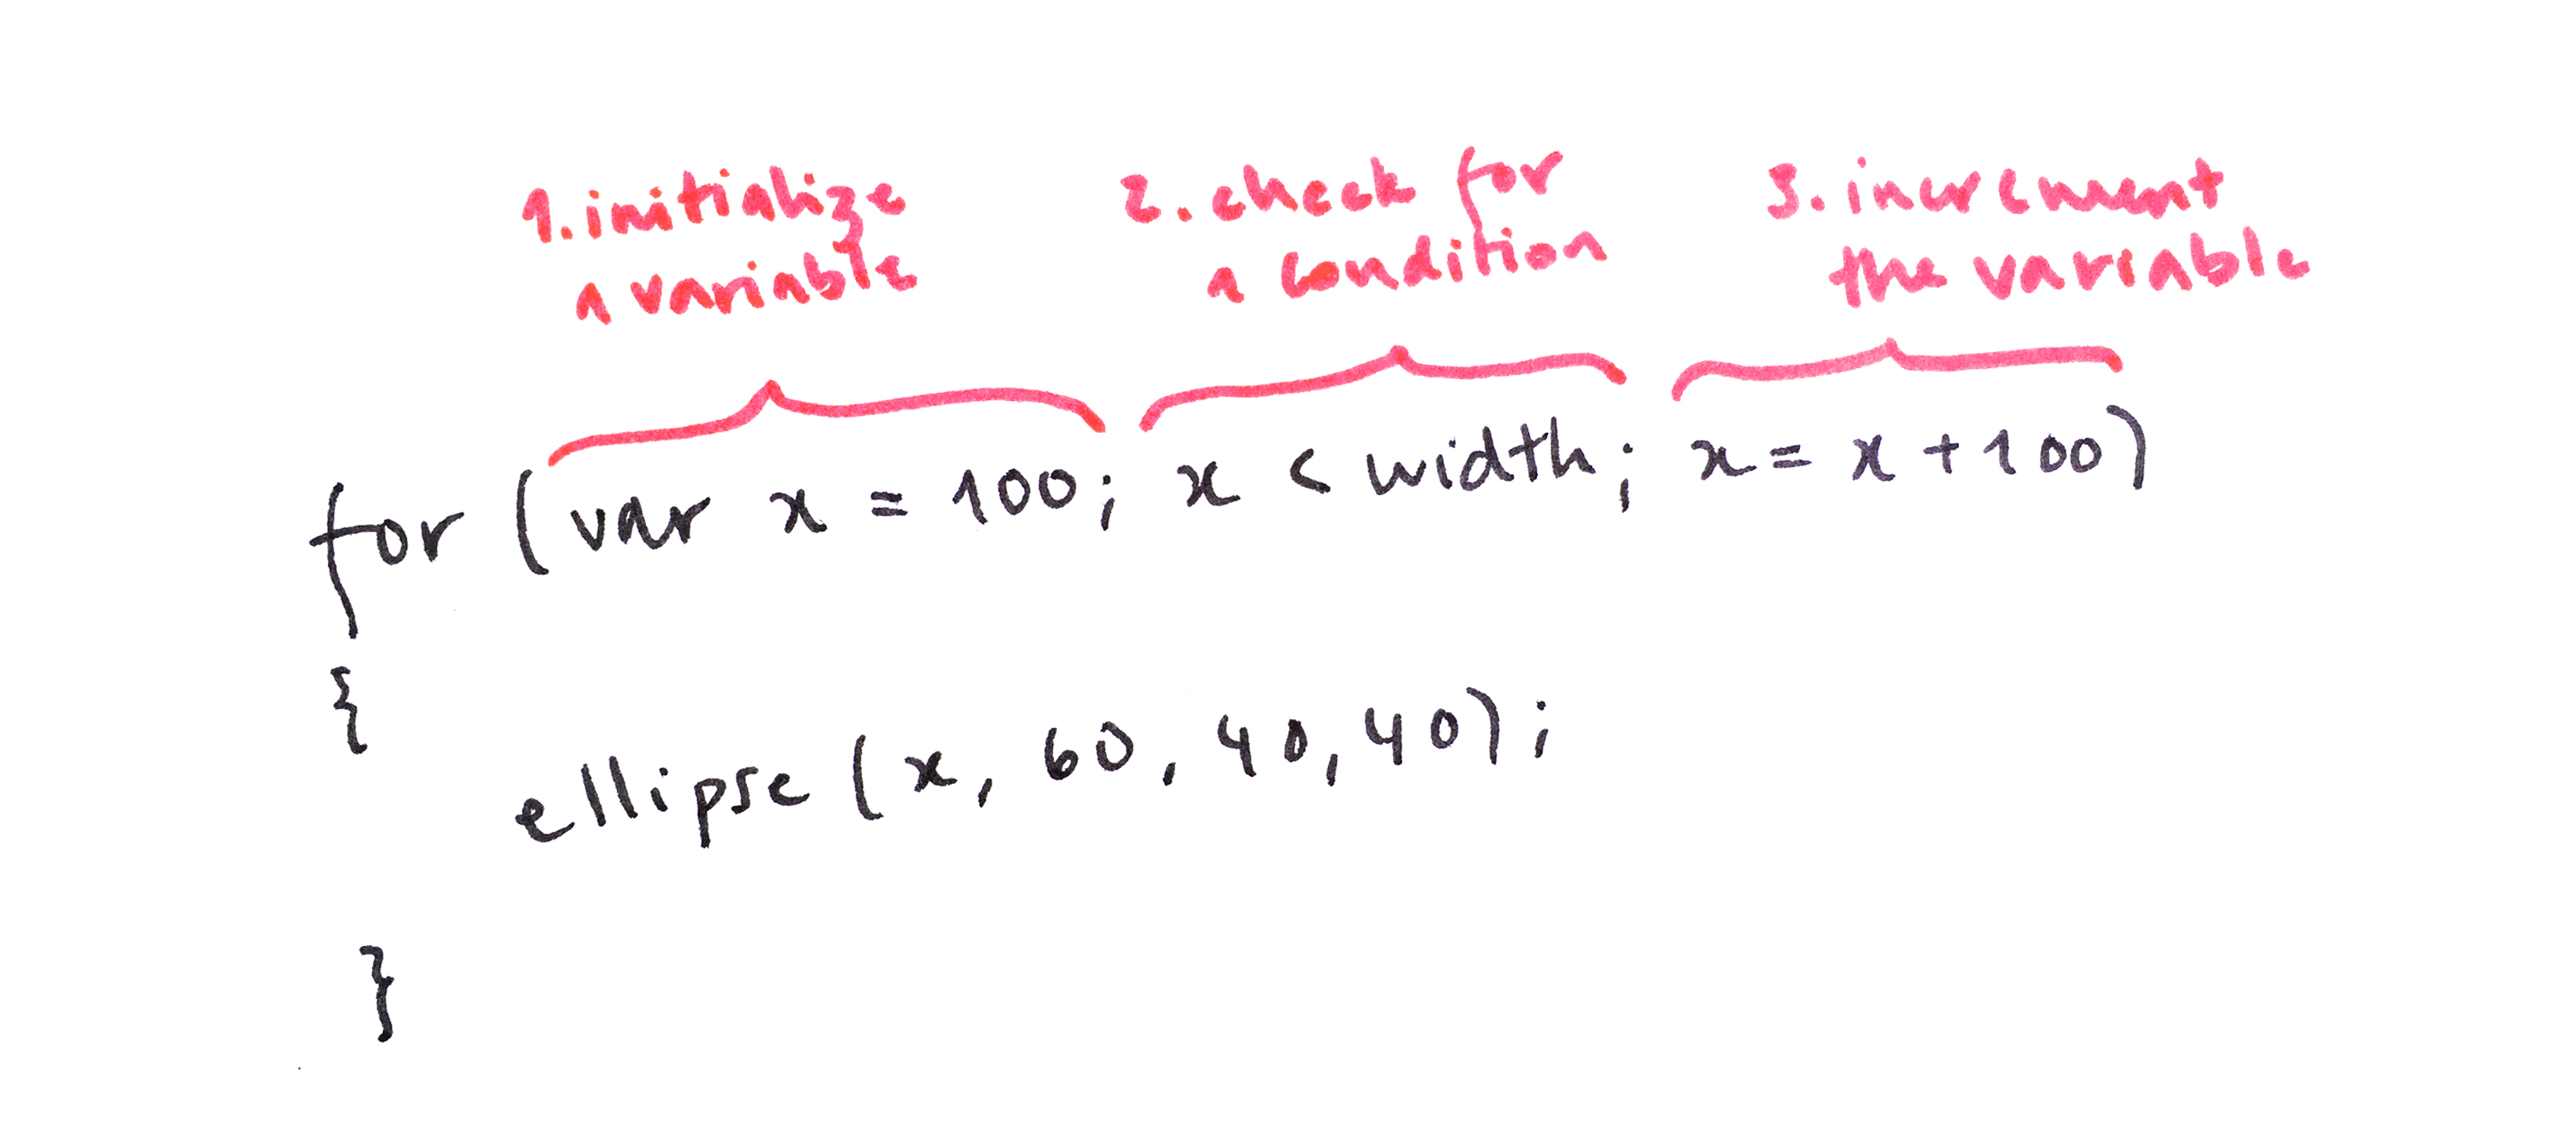 1. initialize
a variable
2. check for
a condition
3. increment
the variable
for (var x = 100; x < width; x = x + 100)
{
ellipse (x, 60, 40, 40);
}